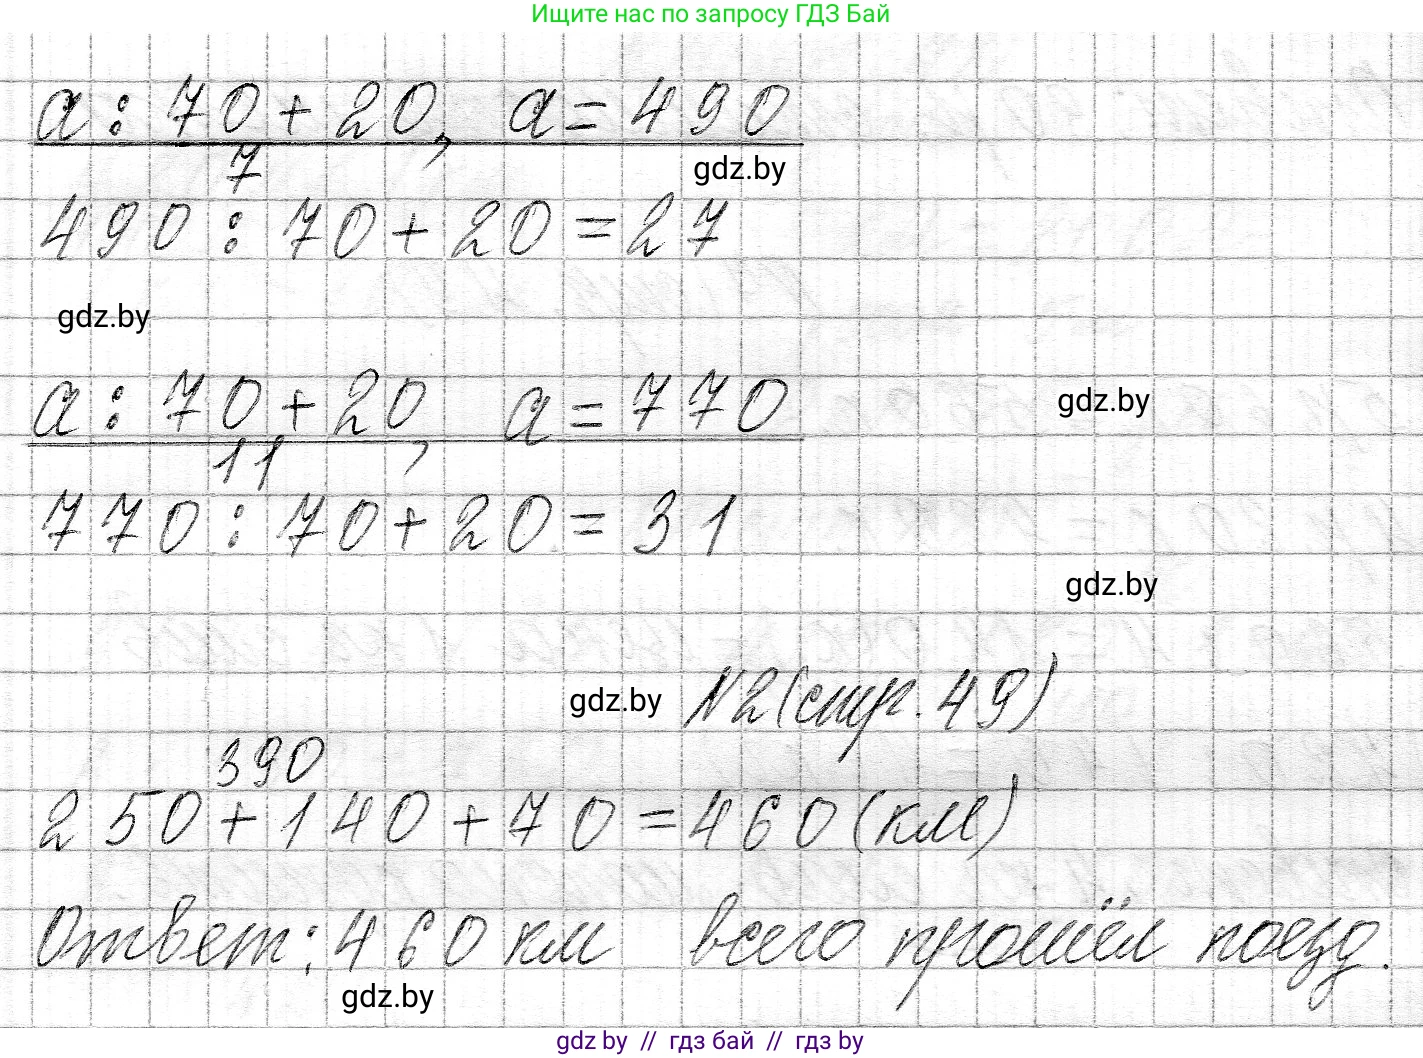 Ищите нас по запросу ГДЗ Бай
a : 70 + 20, a = 490
gdz.by
7
490 : 70 + 20 = 27
gdz.by
a : 70 + 20, a = 770
gdz.by
11
770 : 70 + 20 = 31
gdz.by
gdz.by N2 (стр. 49)
390
250 + 140 + 70 = 460 (км)
Ответ: 460 км всего прошёл поезд.
gdz.by
gdz by // гдз бай // гдз by